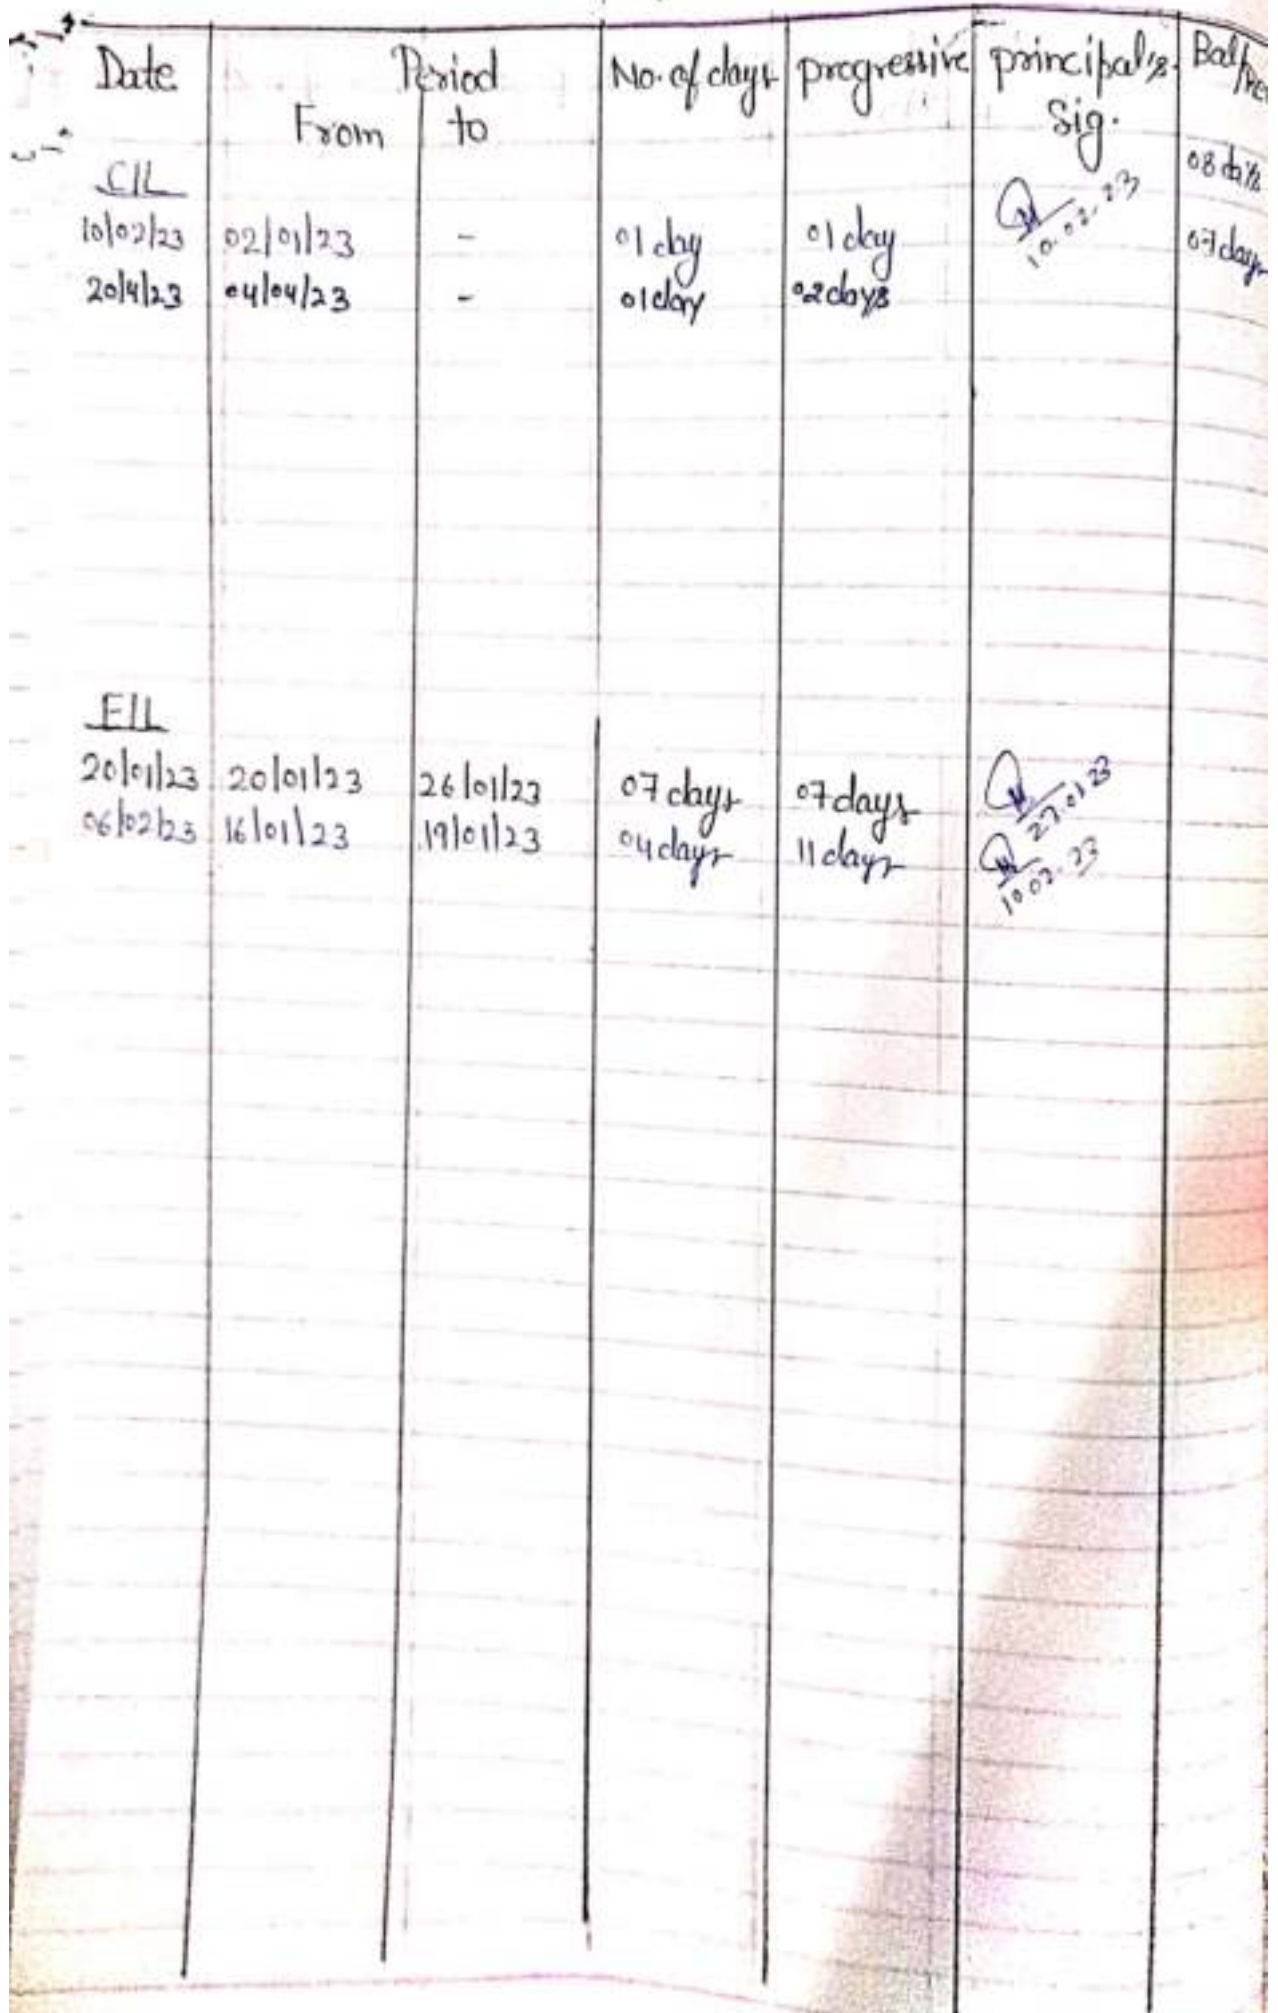 Date Period No. of days progressive principal's Bal
From to Sig.
08 days
C/L
10/02/23 02/01/23 - 01 day 01 day 10.02.23 07 days
20/4/23 04/04/23 - 01 day 02 days
E/L
20/01/23 20/01/23 26/01/23 07 days 07 days 27.01.23
06/02/23 16/01/23 19/01/23 04 days 11 days 10.02.23